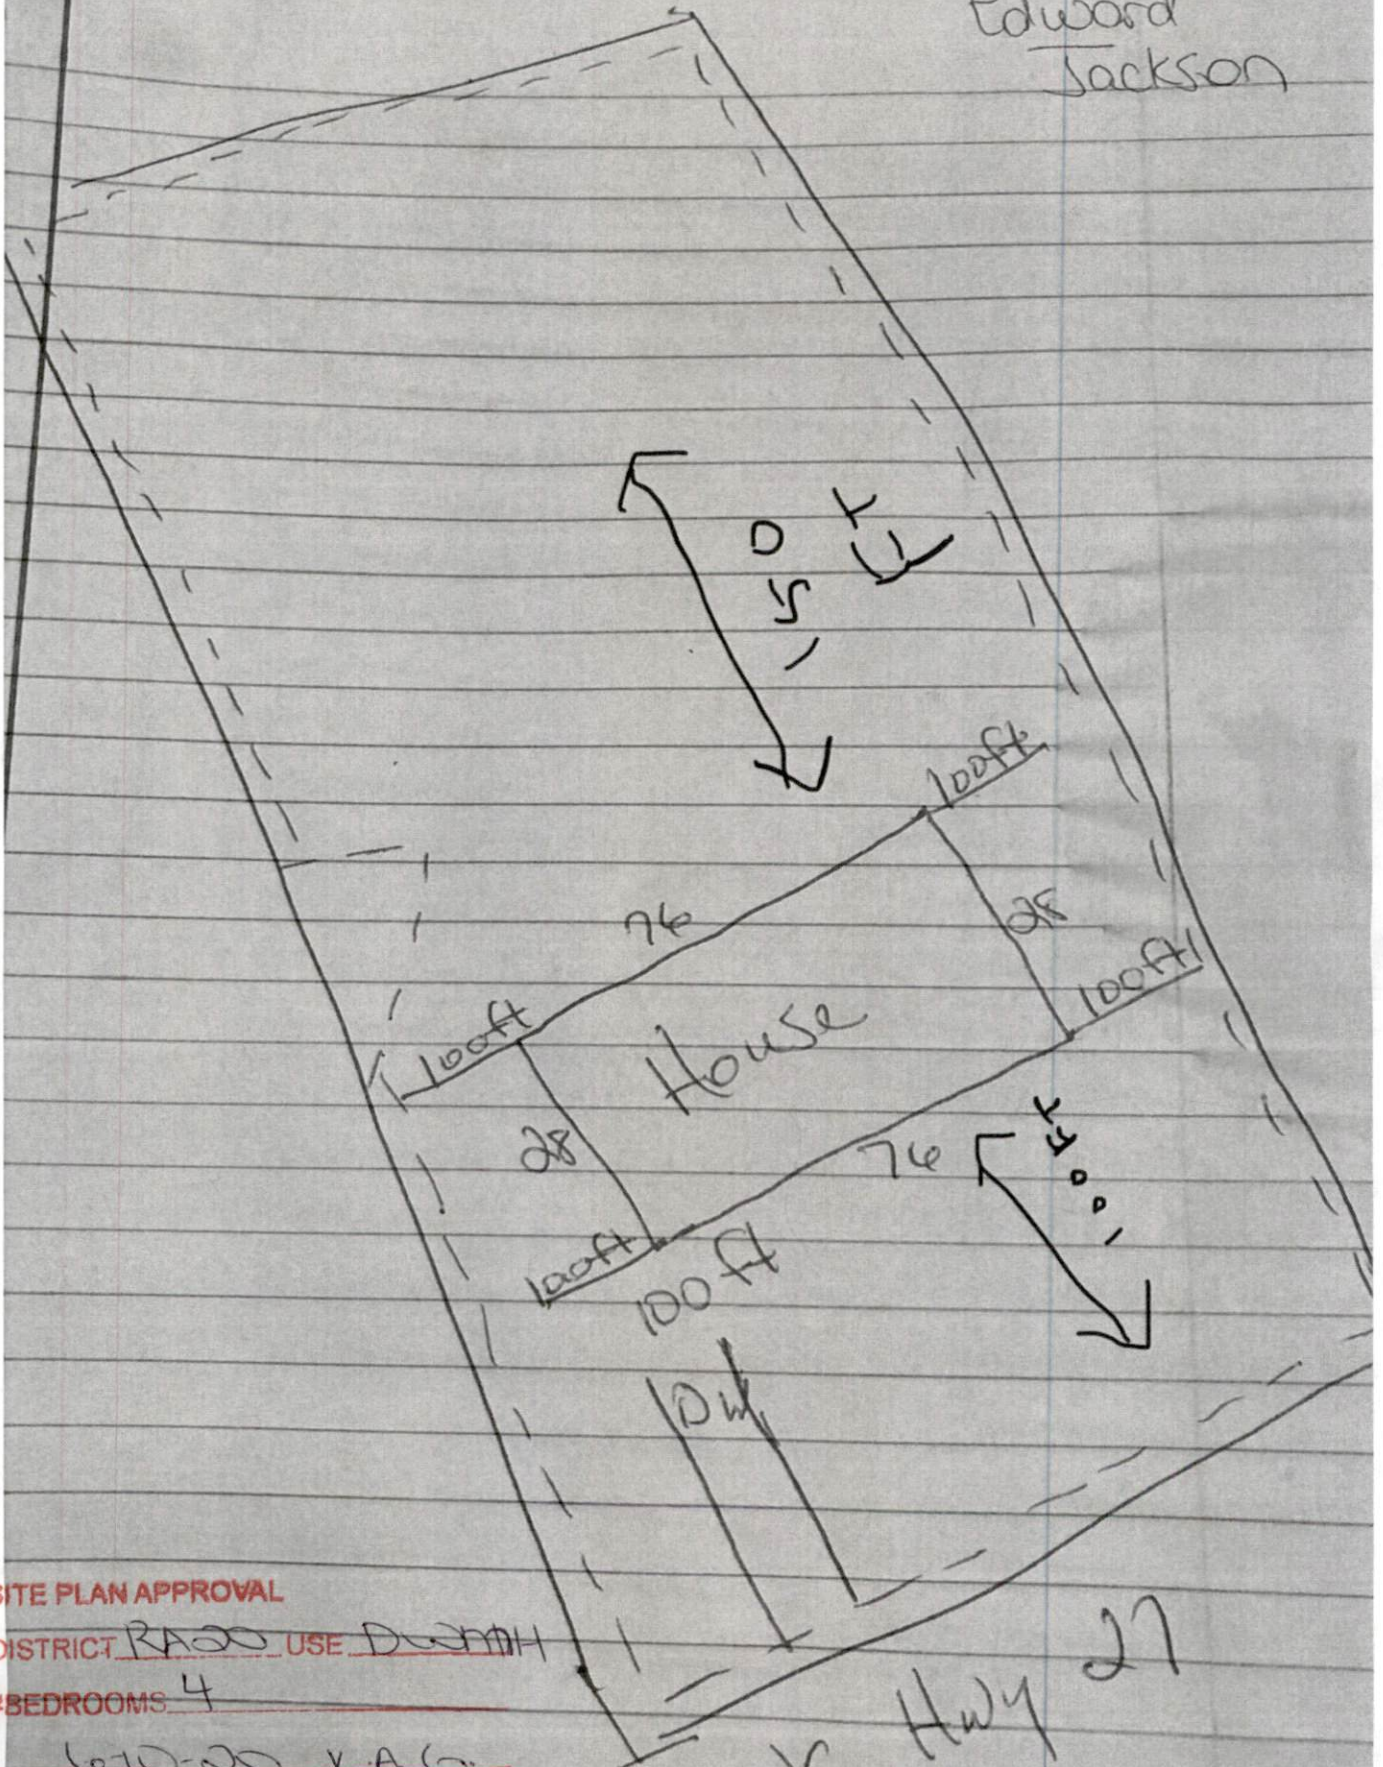 Edward
Jackson
150 FT
100ft
76
28
100ft
100ft
House
28
76
100 FT
100ft
100 ft
DW
SITE PLAN APPROVAL
DISTRICT RA20 USE DWMH
#BEDROOMS 4
Hwy 27